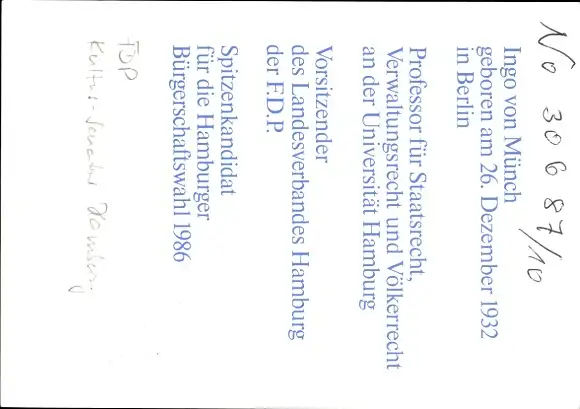 No 30687/10
Ingo von Münch
geboren am 26. Dezember 1932
in Berlin
Professor für Staatsrecht,
Verwaltungsrecht und Völkerrecht
an der Universität Hamburg
Vorsitzender
des Landesverbandes Hamburg
der F.D.P.
Spitzenkandidat
für die Hamburger
Bürgerschaftswahl 1986
FDP
Kultur-Senator Hamburg